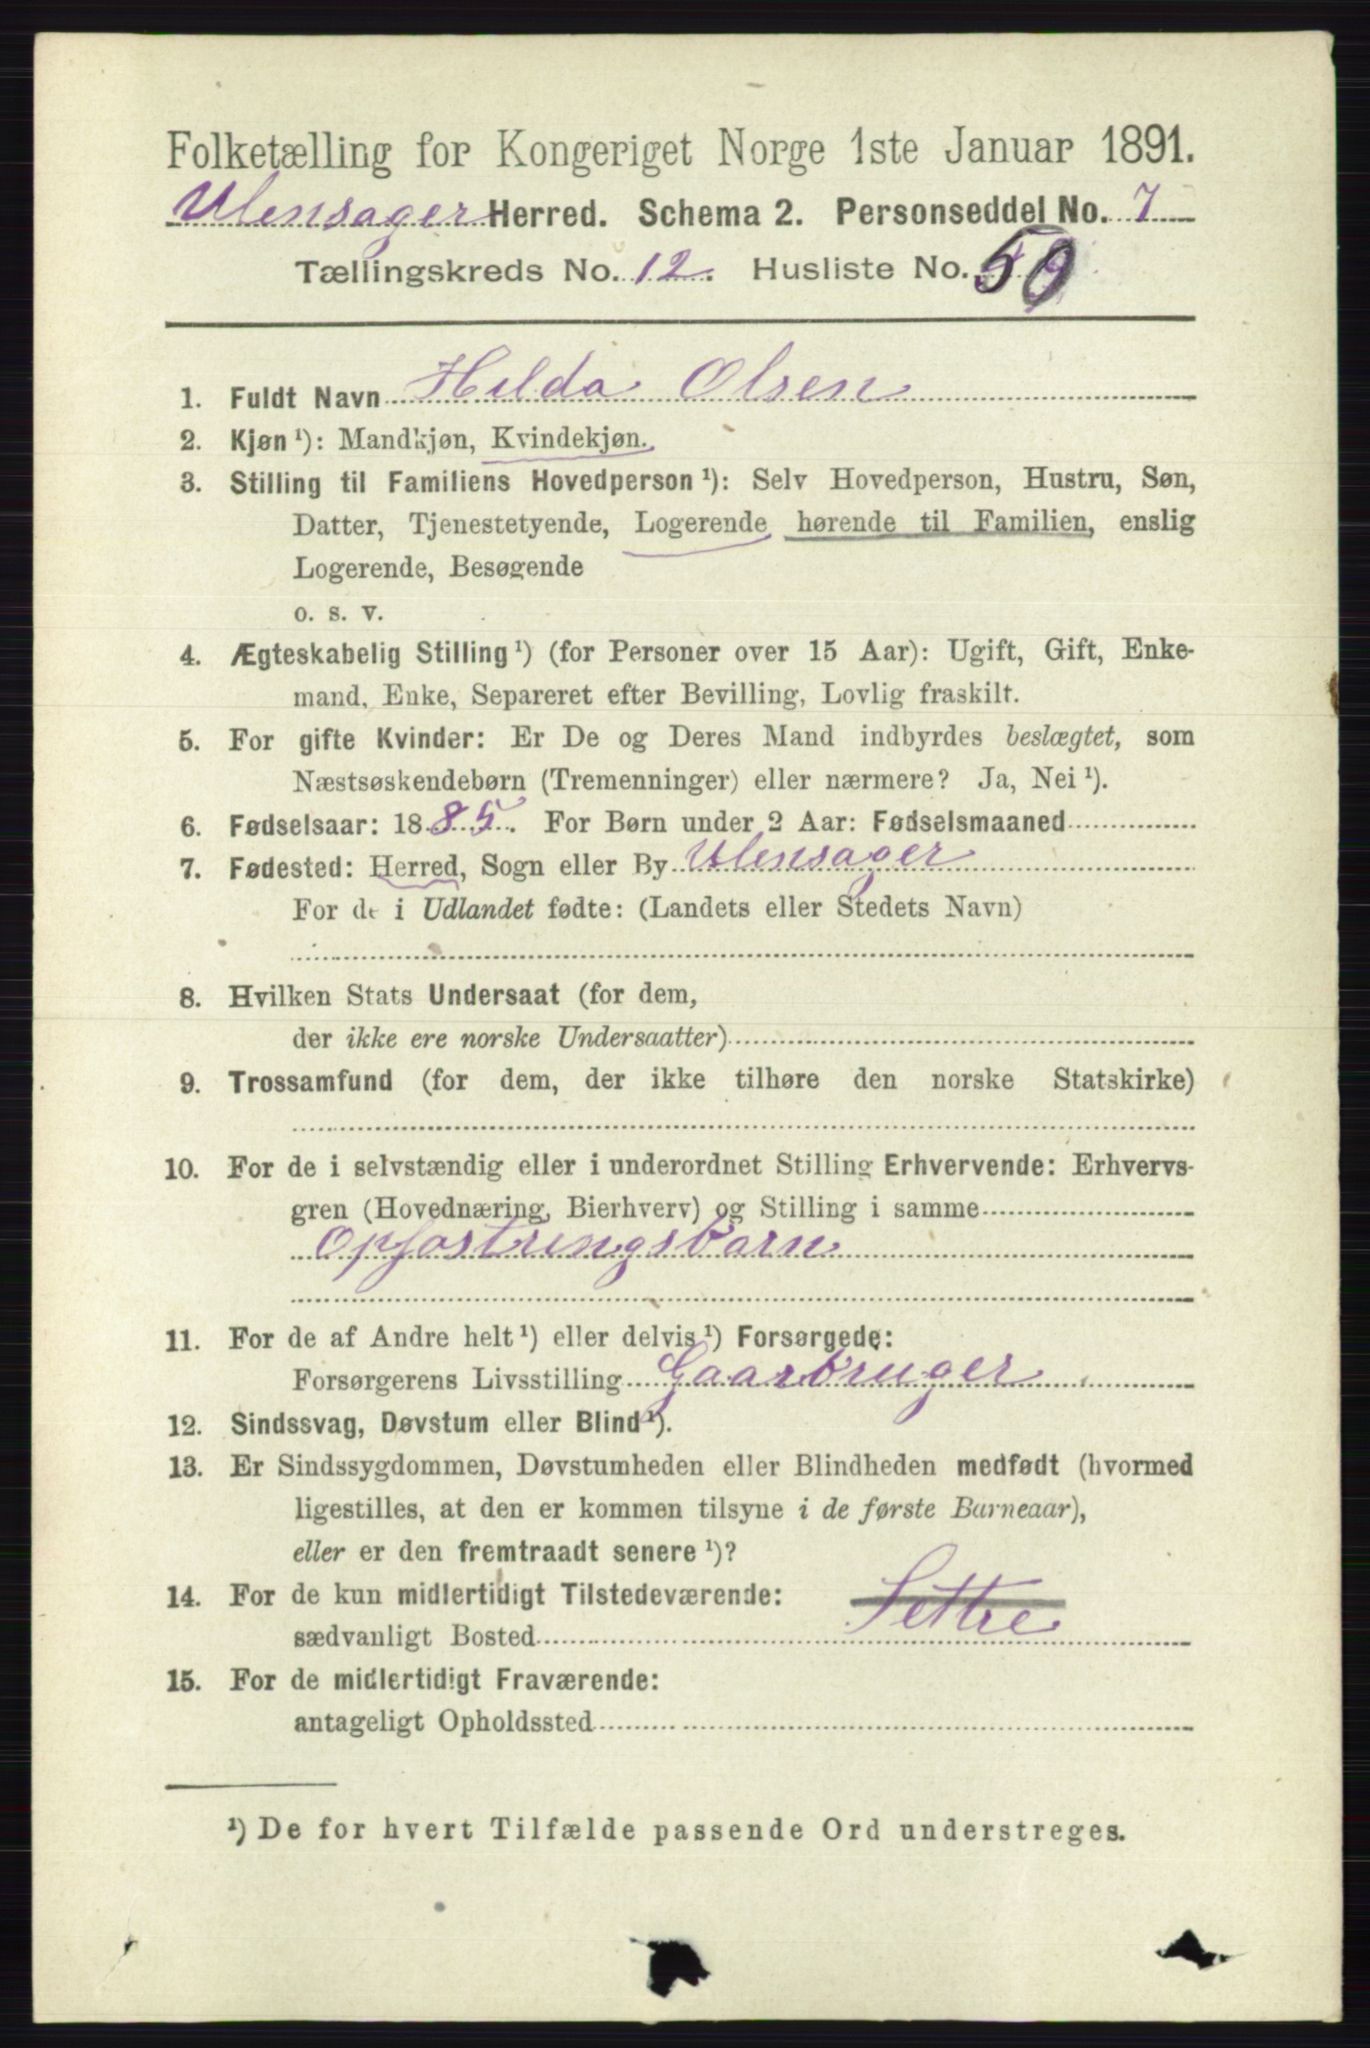 Folketælling for Kongeriget Norge 1ste Januar 1891.
Ulensager Herred. Schema 2. Personseddel No. 7
Tællingskreds No. 12. Husliste No. 50
1. Fuldt Navn Hilda Olsen
2. Kjøn ¹): Mandkjøn, Kvindekjøn.
3. Stilling til Familiens Hovedperson ¹): Selv Hovedperson, Hustru, Søn,
Datter, Tjenestetyende, Logerende hørende til Familien, enslig
Logerende, Besøgende
o. s. v.
4. Ægteskabelig Stilling ¹) (for Personer over 15 Aar): Ugift, Gift, Enke-
mand, Enke, Separeret efter Bevilling, Lovlig fraskilt.
5. For gifte Kvinder: Er De og Deres Mand indbyrdes beslægtet, som
Næstsøskendebørn (Tremenninger) eller nærmere? Ja, Nei ¹).
6. Fødselsaar: 1885. For Børn under 2 Aar: Fødselsmaaned
7. Fødested: Herred, Sogn eller By Ulensager
For de i Udlandet fødte: (Landets eller Stedets Navn)
8. Hvilken Stats Undersaat (for dem,
der ikke ere norske Undersaatter)
9. Trossamfund (for dem, der ikke tilhøre den norske Statskirke)
10. For de i selvstændig eller i underordnet Stilling Erhvervende: Erhvervs-
gren (Hovednæring, Bierhverv) og Stilling i samme
Opfostringsbarn
11. For de af Andre helt ¹) eller delvis ¹) Forsørgede:
Forsørgerens Livsstilling Gaarbruger
12. Sindssvag, Døvstum eller Blind ¹).
13. Er Sindssygdommen, Døvstumheden eller Blindheden medfødt (hvormed
ligestilles, at den er kommen tilsyne i de første Barneaar),
eller er den fremtraadt senere ¹)?
14. For de kun midlertidigt Tilstedeværende:
sædvanligt Bosted Settre
15. For de midlertidigt Fraværende:
antageligt Opholdssted
¹) De for hvert Tilfælde passende Ord understreges.